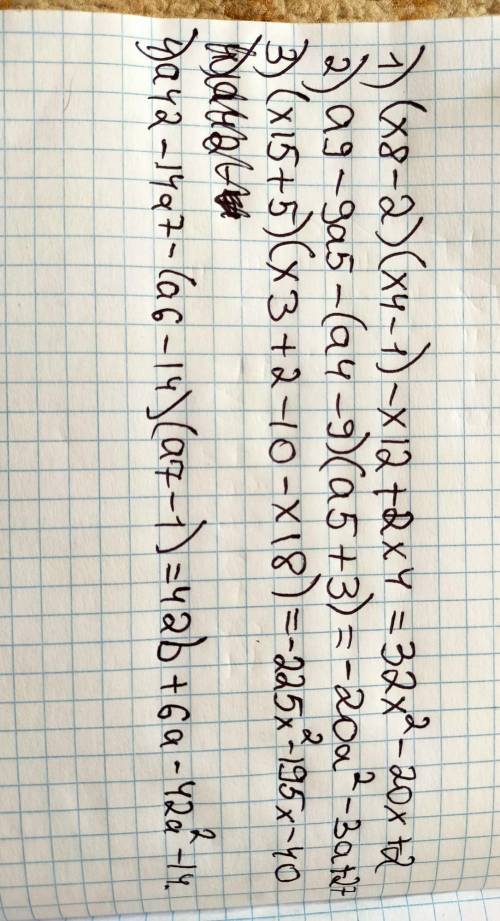 1) (x8-2)(x4-1)-x12+2x4=32x²-20x+2
2) a9-9a5-(a4-9)(a5+3)=-20a²-3a+27
3) (x15+5)(x3+2-10-x18)=-225x²-195x-40
4) a42-14a7-(a6-14)(a7-1)=42b+6a-42a²-14.